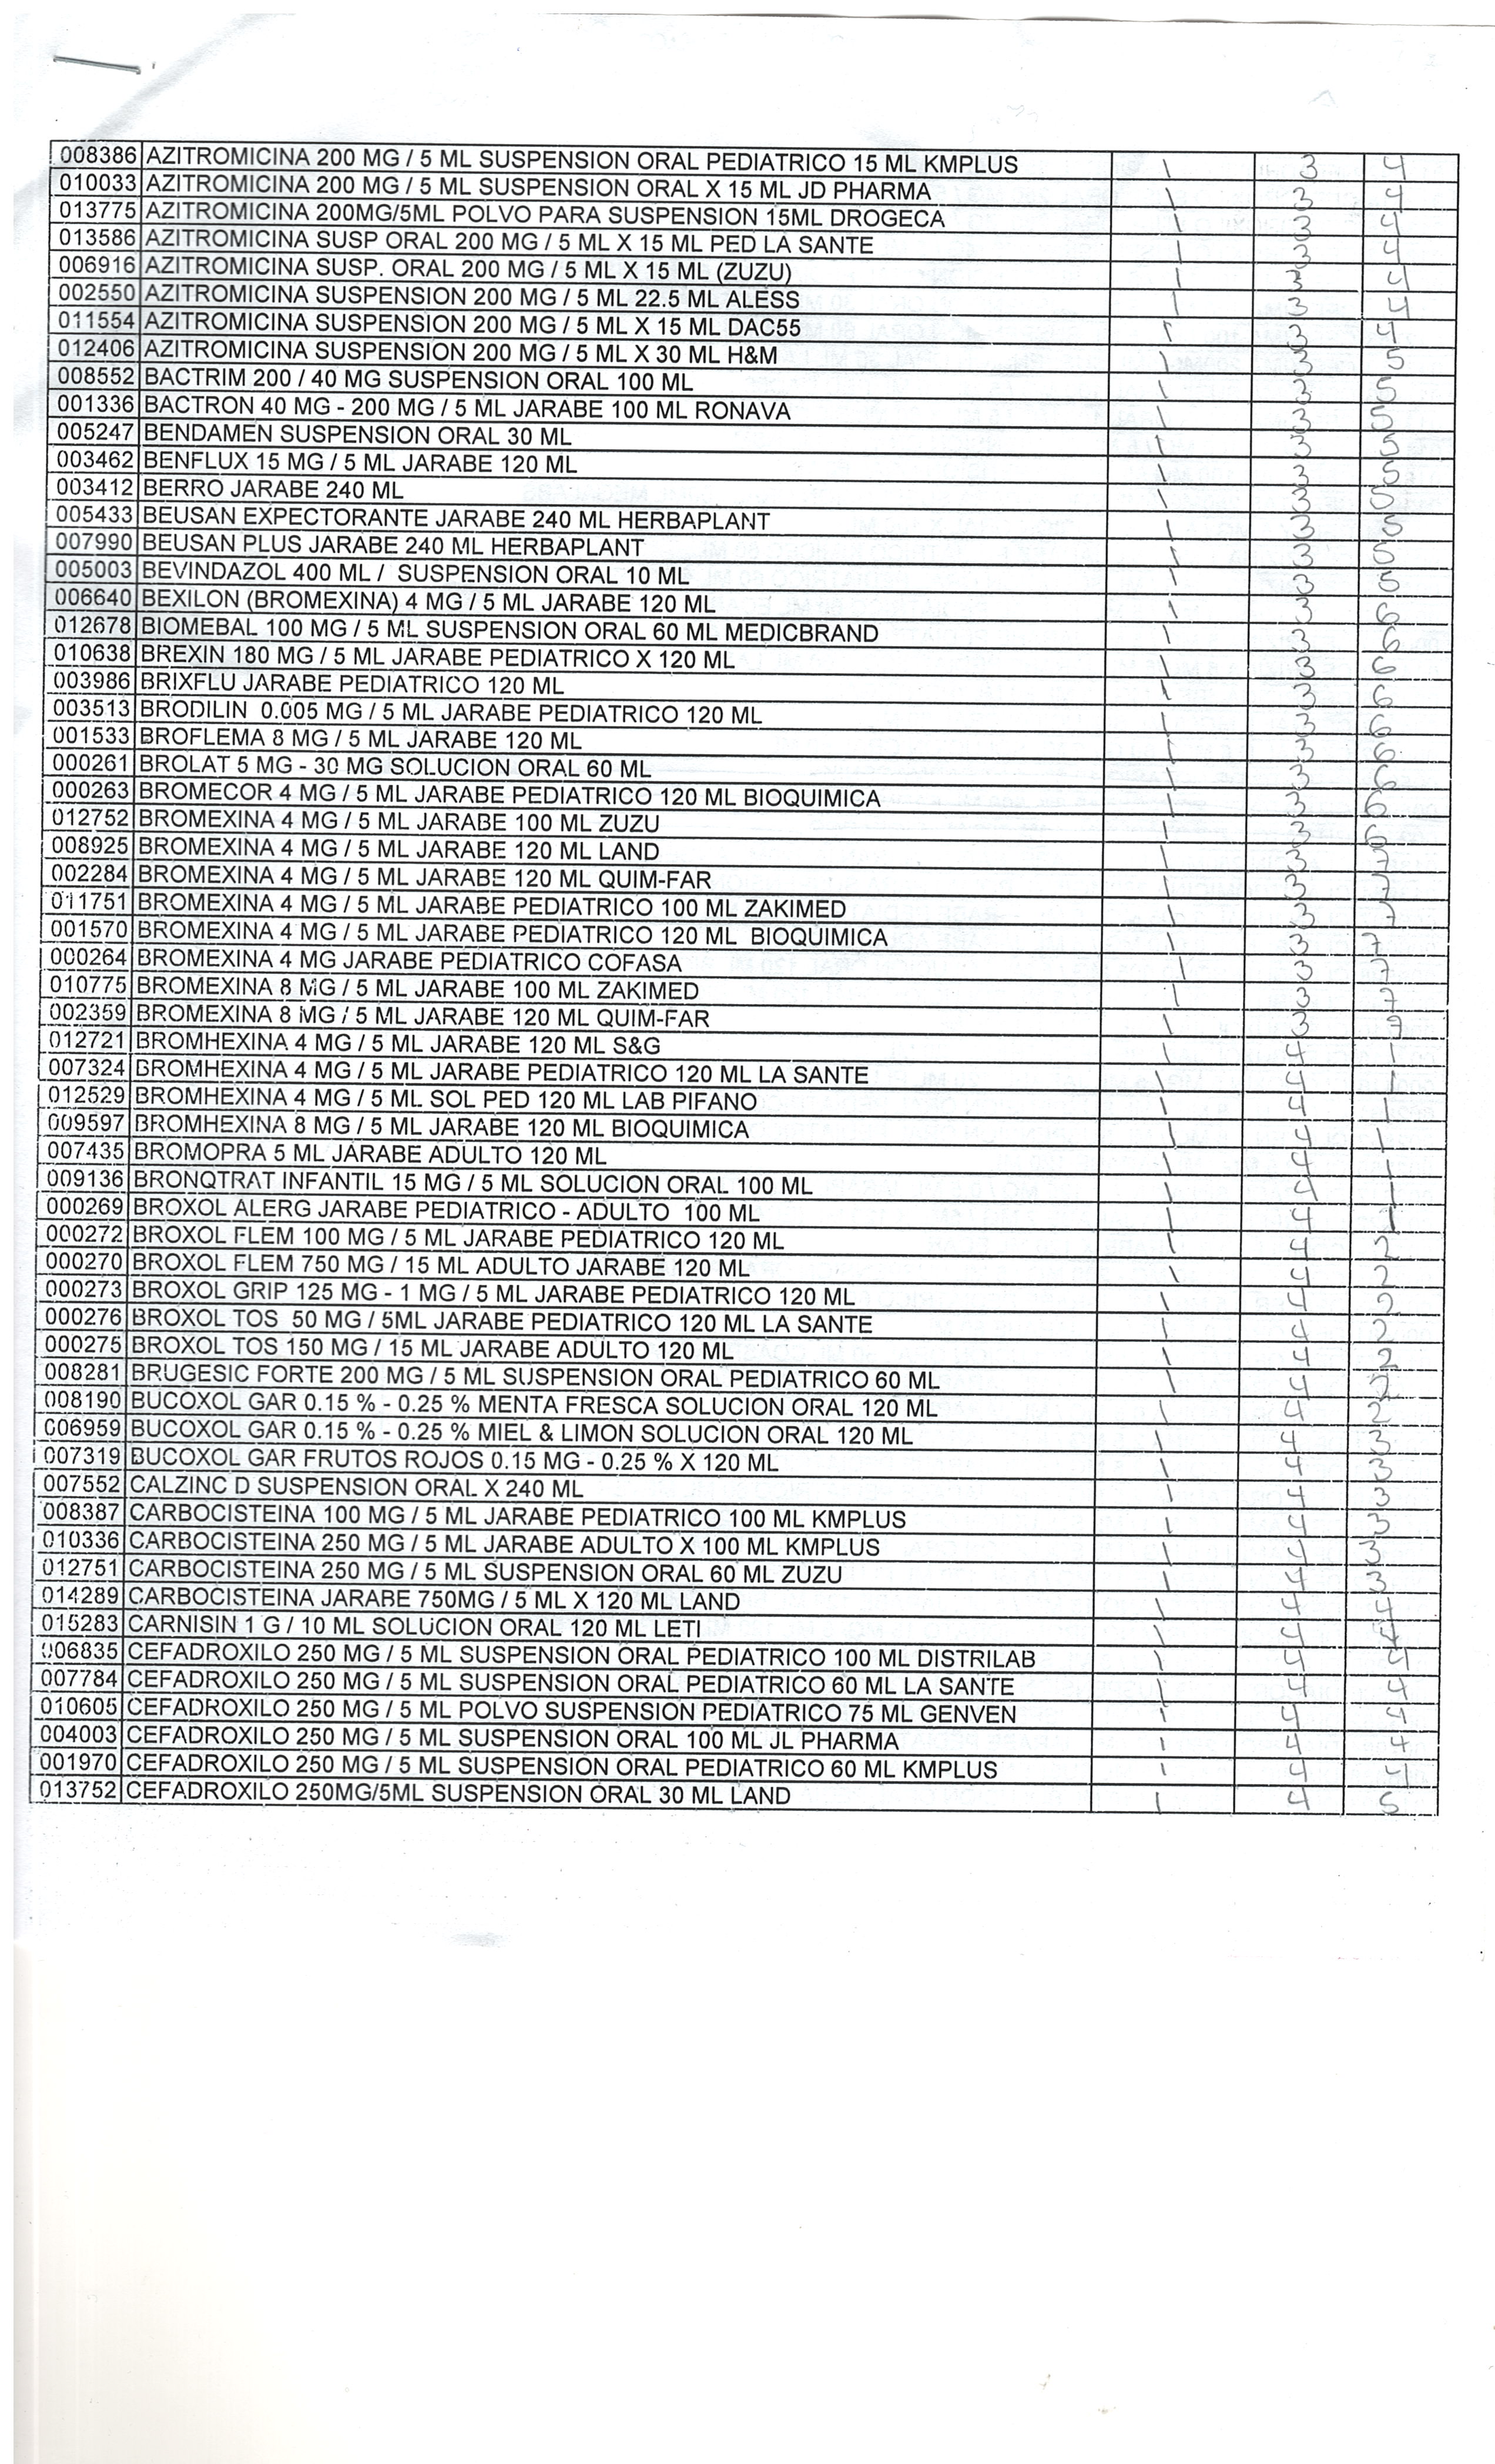 008386 AZITROMICINA 200 MG / 5 ML SUSPENSION ORAL PEDIATRICO 15 ML KMPLUS 1 3 4
010033 AZITROMICINA 200 MG / 5 ML SUSPENSION ORAL X 15 ML JD PHARMA 1 3 4
013775 AZITROMICINA 200MG/5ML POLVO PARA SUSPENSION 15ML DROGECA 1 3 4
013586 AZITROMICINA SUSP ORAL 200 MG / 5 ML X 15 ML PED LA SANTE 1 3 4
006916 AZITROMICINA SUSP. ORAL 200 MG / 5 ML X 15 ML (ZUZU) 1 3 4
002550 AZITROMICINA SUSPENSION 200 MG / 5 ML 22.5 ML ALESS 1 3 4
011554 AZITROMICINA SUSPENSION 200 MG / 5 ML X 15 ML DAC55 1 3 4
012406 AZITROMICINA SUSPENSION 200 MG / 5 ML X 30 ML H&M 1 3 5
008552 BACTRIM 200 / 40 MG SUSPENSION ORAL 100 ML 1 3 5
001336 BACTRON 40 MG - 200 MG / 5 ML JARABE 100 ML RONAVA 1 3 5
005247 BENDAMEN SUSPENSION ORAL 30 ML 1 3 5
003462 BENFLUX 15 MG / 5 ML JARABE 120 ML 1 3 5
003412 BERRO JARABE 240 ML 1 3 5
005433 BEUSAN EXPECTORANTE JARABE 240 ML HERBAPLANT 1 3 5
007990 BEUSAN PLUS JARABE 240 ML HERBAPLANT 1 3 5
005003 BEVINDAZOL 400 ML / SUSPENSION ORAL 10 ML 1 3 5
006640 BEXILON (BROMEXINA) 4 MG / 5 ML JARABE 120 ML 1 3 6
012678 BIOMEBAL 100 MG / 5 ML SUSPENSION ORAL 60 ML MEDICBRAND 1 3 6
010638 BREXIN 180 MG / 5 ML JARABE PEDIATRICO X 120 ML 1 3 6
003986 BRIXFLU JARABE PEDIATRICO 120 ML 1 3 6
003513 BRODILIN 0.005 MG / 5 ML JARABE PEDIATRICO 120 ML 1 3 6
001533 BROFLEMA 8 MG / 5 ML JARABE 120 ML 1 3 6
000261 BROLAT 5 MG - 30 MG SOLUCION ORAL 60 ML 1 3 6
000263 BROMECOR 4 MG / 5 ML JARABE PEDIATRICO 120 ML BIOQUIMICA 1 3 6
012752 BROMEXINA 4 MG / 5 ML JARABE 100 ML ZUZU 1 3 6
008925 BROMEXINA 4 MG / 5 ML JARABE 120 ML LAND 1 3 7
002284 BROMEXINA 4 MG / 5 ML JARABE 120 ML QUIM-FAR 1 3 7
011751 BROMEXINA 4 MG / 5 ML JARABE PEDIATRICO 100 ML ZAKIMED 1 3 7
001570 BROMEXINA 4 MG / 5 ML JARABE PEDIATRICO 120 ML BIOQUIMICA 1 3 7
000264 BROMEXINA 4 MG JARABE PEDIATRICO COFASA 1 3 7
010775 BROMEXINA 8 MG / 5 ML JARABE 100 ML ZAKIMED 1 3 7
002359 BROMEXINA 8 MG / 5 ML JARABE 120 ML QUIM-FAR 1 3 7
012721 BROMHEXINA 4 MG / 5 ML JARABE 120 ML S&G 1 4 1
007324 BROMHEXINA 4 MG / 5 ML JARABE PEDIATRICO 120 ML LA SANTE 1 4 1
012529 BROMHEXINA 4 MG / 5 ML SOL PED 120 ML LAB PIFANO 1 4 1
009597 BROMHEXINA 8 MG / 5 ML JARABE 120 ML BIOQUIMICA 1 4 1
007435 BROMOPRA 5 ML JARABE ADULTO 120 ML 1 4 1
009136 BRONQTRAT INFANTIL 15 MG / 5 ML SOLUCION ORAL 100 ML 1 4 1
000269 BROXOL ALERG JARABE PEDIATRICO - ADULTO 100 ML 1 4 1
000272 BROXOL FLEM 100 MG / 5 ML JARABE PEDIATRICO 120 ML 1 4 2
000270 BROXOL FLEM 750 MG / 15 ML ADULTO JARABE 120 ML 1 4 2
000273 BROXOL GRIP 125 MG - 1 MG / 5 ML JARABE PEDIATRICO 120 ML 1 4 2
000276 BROXOL TOS 50 MG / 5ML JARABE PEDIATRICO 120 ML LA SANTE 1 4 2
000275 BROXOL TOS 150 MG / 15 ML JARABE ADULTO 120 ML 1 4 2
008281 BRUGESIC FORTE 200 MG / 5 ML SUSPENSION ORAL PEDIATRICO 60 ML 1 4 2
008190 BUCOXOL GAR 0.15 % - 0.25 % MENTA FRESCA SOLUCION ORAL 120 ML 1 4 2
006959 BUCOXOL GAR 0.15 % - 0.25 % MIEL & LIMON SOLUCION ORAL 120 ML 1 4 3
007319 BUCOXOL GAR FRUTOS ROJOS 0.15 MG - 0.25 % X 120 ML 1 4 3
007552 CALZINC D SUSPENSION ORAL X 240 ML 1 4 3
008387 CARBOCISTEINA 100 MG / 5 ML JARABE PEDIATRICO 100 ML KMPLUS 1 4 3
010336 CARBOCISTEINA 250 MG / 5 ML JARABE ADULTO X 100 ML KMPLUS 1 4 3
012751 CARBOCISTEINA 250 MG / 5 ML SUSPENSION ORAL 60 ML ZUZU 1 4 3
014289 CARBOCISTEINA JARABE 750MG / 5 ML X 120 ML LAND 1 4 4
015283 CARNISIN 1 G / 10 ML SOLUCION ORAL 120 ML LETI 1 4 4
006835 CEFADROXILO 250 MG / 5 ML SUSPENSION ORAL PEDIATRICO 100 ML DISTRILAB 1 4 4
007784 CEFADROXILO 250 MG / 5 ML SUSPENSION ORAL PEDIATRICO 60 ML LA SANTE 1 4 4
010605 CEFADROXILO 250 MG / 5 ML POLVO SUSPENSION PEDIATRICO 75 ML GENVEN 1 4 4
004003 CEFADROXILO 250 MG / 5 ML SUSPENSION ORAL 100 ML JL PHARMA 1 4 4
001970 CEFADROXILO 250 MG / 5 ML SUSPENSION ORAL PEDIATRICO 60 ML KMPLUS 1 4 4
013752 CEFADROXILO 250MG/5ML SUSPENSION ORAL 30 ML LAND 1 4 5